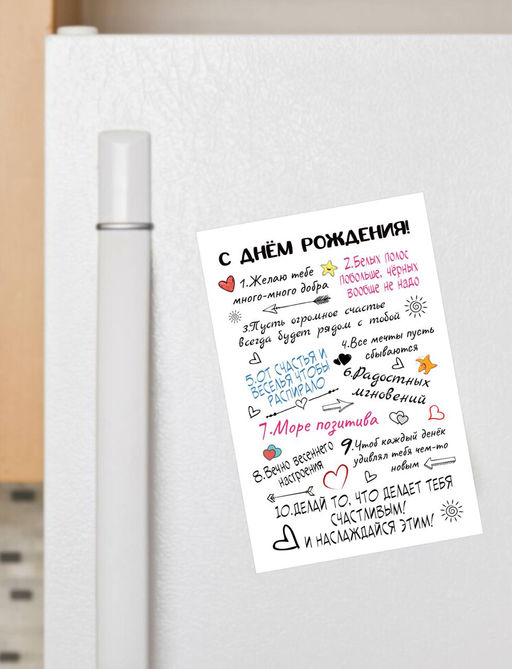 С ДНЁМ РОЖДЕНИЯ!
1.Желаю тебе
много-много добра
2.Белых полос
побольше, чёрных
вообще не надо
3.Пусть огромное счастье
всегда будет рядом с тобой
4.Все мечты пусть
сбываются
5.ОТ СЧАСТЬЯ И
ВЕСЕЛЬЯ ЧТОБЫ
РАСПИРАЛО
6.Радостных
мгновений
7.Море позитива
8.Вечно весеннего
настроения
9.Чтоб каждый денёк
удивлял тебя чем-то
новым
10.ДЕЛАЙ ТО, ЧТО ДЕЛАЕТ ТЕБЯ
СЧАСТЛИВЫМ!
И НАСЛАЖДАЙСЯ ЭТИМ!